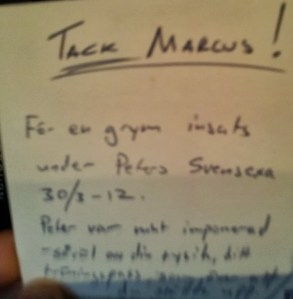 TACK MARCUS!
För en grym insats
under Peters Svensexa
30/3-12.
Peter var mkt imponerad
såväl av din fysik, ditt
träningspass, som